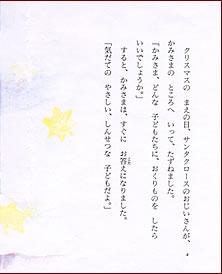 クリスマスの まえの日、サンタクロースのおじいさんが、
かみさまの ところへ いって、たずねました。
「かみさま、どんな 子どもたちに、おくりものを したら
いいでしょうか。」
すると、かみさまは、すぐに お答えになりました。
「気だての やさしい、しんせつな 子どもだよ。」